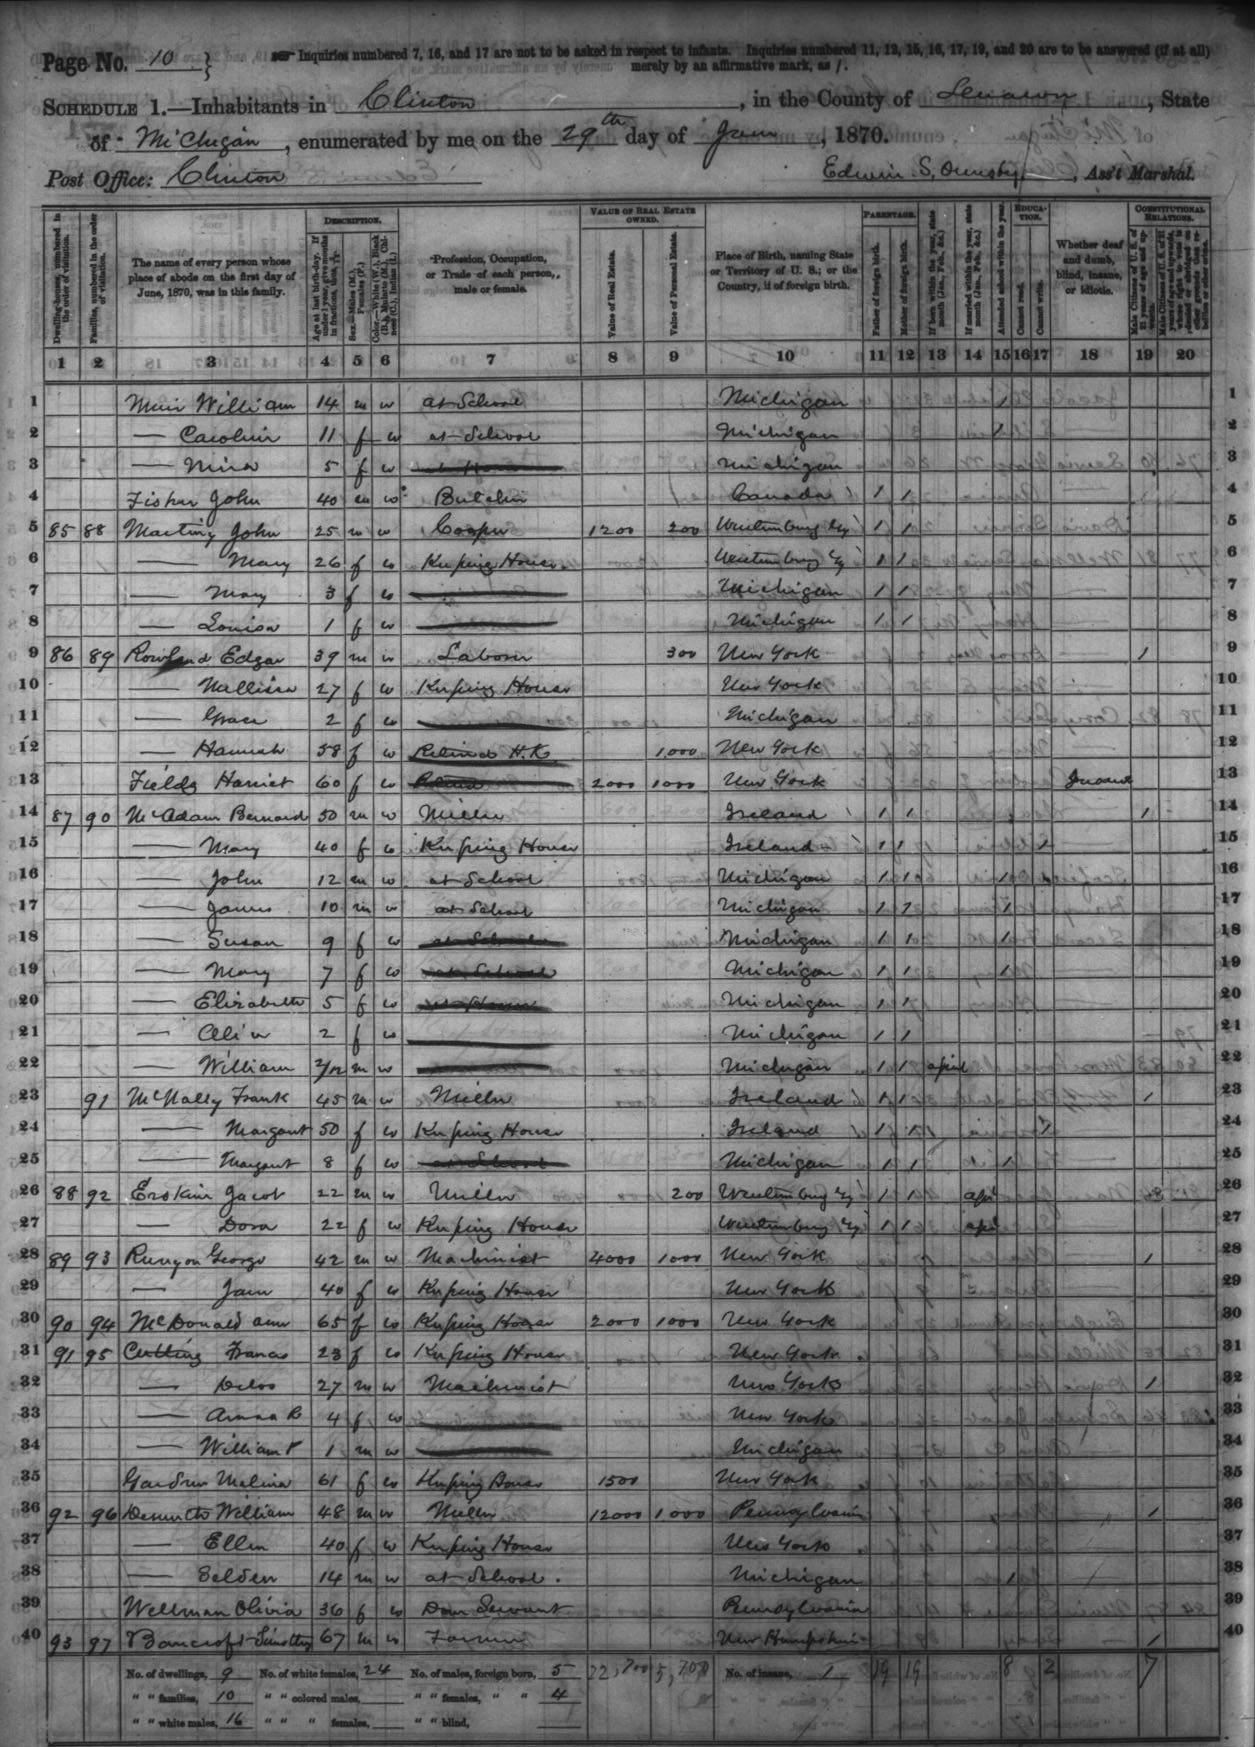 Page No. 10 } Inquiries numbered 7, 16, and 17 are not to be asked in respect to infants. Inquiries numbered 11, 12, 15, 16, 17, 19, and 20 are to be answered (if at all)
merely by an affirmative mark, as /.
SCHEDULE 1.—Inhabitants in Clinton, in the County of Lenawee, State
of Michigan, enumerated by me on the 29th day of June, 1870.
Post Office: Clinton Edwin S. Ormsby, Ass't Marshal.
DESCRIPTION. VALUE OF REAL ESTATE OWNED. PARENTAGE. EDUCATION. CONSTITUTIONAL RELATIONS.
Dwelling-houses, numbered in the order of visitation.
Families, numbered in the order of visitation.
The name of every person whose place of abode on the first day of June, 1870, was in this family.
Age at last birth-day. If under 1 year, give months in fractions, thus, 3/12
Sex.—Males (M.), Females (F.)
Color.—White (W.), Black (B.), Mulatto (M.), Chinese (C.), Indian (I.)
Profession, Occupation, or Trade of each person, male or female.
Value of Real Estate.
Value of Personal Estate.
Place of Birth, naming State or Territory of U. S.; or the Country, if of foreign birth.
Father of foreign birth.
Mother of foreign birth.
If born within the year, state month (Jan., Feb., &c.)
If married within the year, state month (Jan., Feb., &c.)
Attended school within the year.
Cannot read.
Cannot write.
Whether deaf and dumb, blind, insane, or idiotic.
Male Citizens of U. S. of 21 years of age and upwards.
1 2 3 4 5 6 7 8 9 10 11 12 13 14 15 16 17 18 19 20
1 Muir William 14 m w at School Michigan / 1
2 — Caroline 11 f w at School Michigan / 2
3 — Nina 5 f w at Home Michigan 3
4 Fisher John 40 m w Butcher Canada / / 4
5 85 88 John 25 m w Cooper 1200 200 / / 5
6 — Mary 26 f w Keeping House / / 6
7 — Mary 3 f w Michigan / / 7
8 — Louisa 1 f w Michigan / / 8
9 86 89 Rowland Edgar 39 m w Laborer 300 New York / 9
10 — Mellissa 27 f w Keeping House New York 10
11 — Grace 2 f w Michigan 11
12 — Hannah 58 f w Retired H.K. 1,000 New York 12
13 Fields Harriet 60 f w 2000 1000 New York Insane 13
14 87 90 McAdam Bernard 50 m w Miller Ireland / / / 14
15 — Mary 40 f w Keeping House Ireland / / / 15
16 — John 12 m w at School Michigan / / / 16
17 — James 10 m w at School Michigan / / / 17
18 — Susan 9 f w at School Michigan / / / 18
19 — Mary 7 f w at School Michigan / / / 19
20 — Elizabeth 5 f w at Home Michigan / / 20
21 — 2 f w Michigan / / 21
22 — William 2/12 m w Michigan / / april 22
23 91 McNally Frank 45 m w Miller Ireland / / / 23
24 — Margaret 50 f w Keeping House Ireland / / / 24
25 — Margaret 8 f w at School Michigan / / / 25
26 88 92 Erskine Jacob 22 m w Miller 200 / / apr 26
27 — Dora 22 f w Keeping House / / apr 27
28 89 93 Runyon George 42 m w Machinist 4000 1000 New York / 28
29 — Jane 40 f w Keeping House New York 29
30 90 94 McDonald Ann 65 f w Keeping House 2000 1000 New York 30
31 91 95 Cutting Frances 23 f w Keeping House New York 31
32 — Delos 27 m w Machinist New York / 32
33 — Anna B 4 f w New York 33
34 — William P 1 m w Michigan 34
35 Gardner Melina 61 f w Keeping House 1500 New York 35
36 92 96 William 48 m w Miller 12000 1000 Pennsylvania / 36
37 — Ellen 40 f w Keeping House New York 37
38 — Selden 14 m w at School. Michigan / 38
39 Wellman Olivia 36 f w Dom Servant Pennsylvania 39
40 93 97 Bancroft Timothy 67 m w Farmer New Hampshire / 40
No. of dwellings, 9 No. of white females, 24 No. of males, foreign born, 5 22,700 5,700 No. of insane, 1 19 19 8 2 7
" " families, 10 " " colored males, " " females, " " 4
" " white males, 16 " " " females, " " blind,